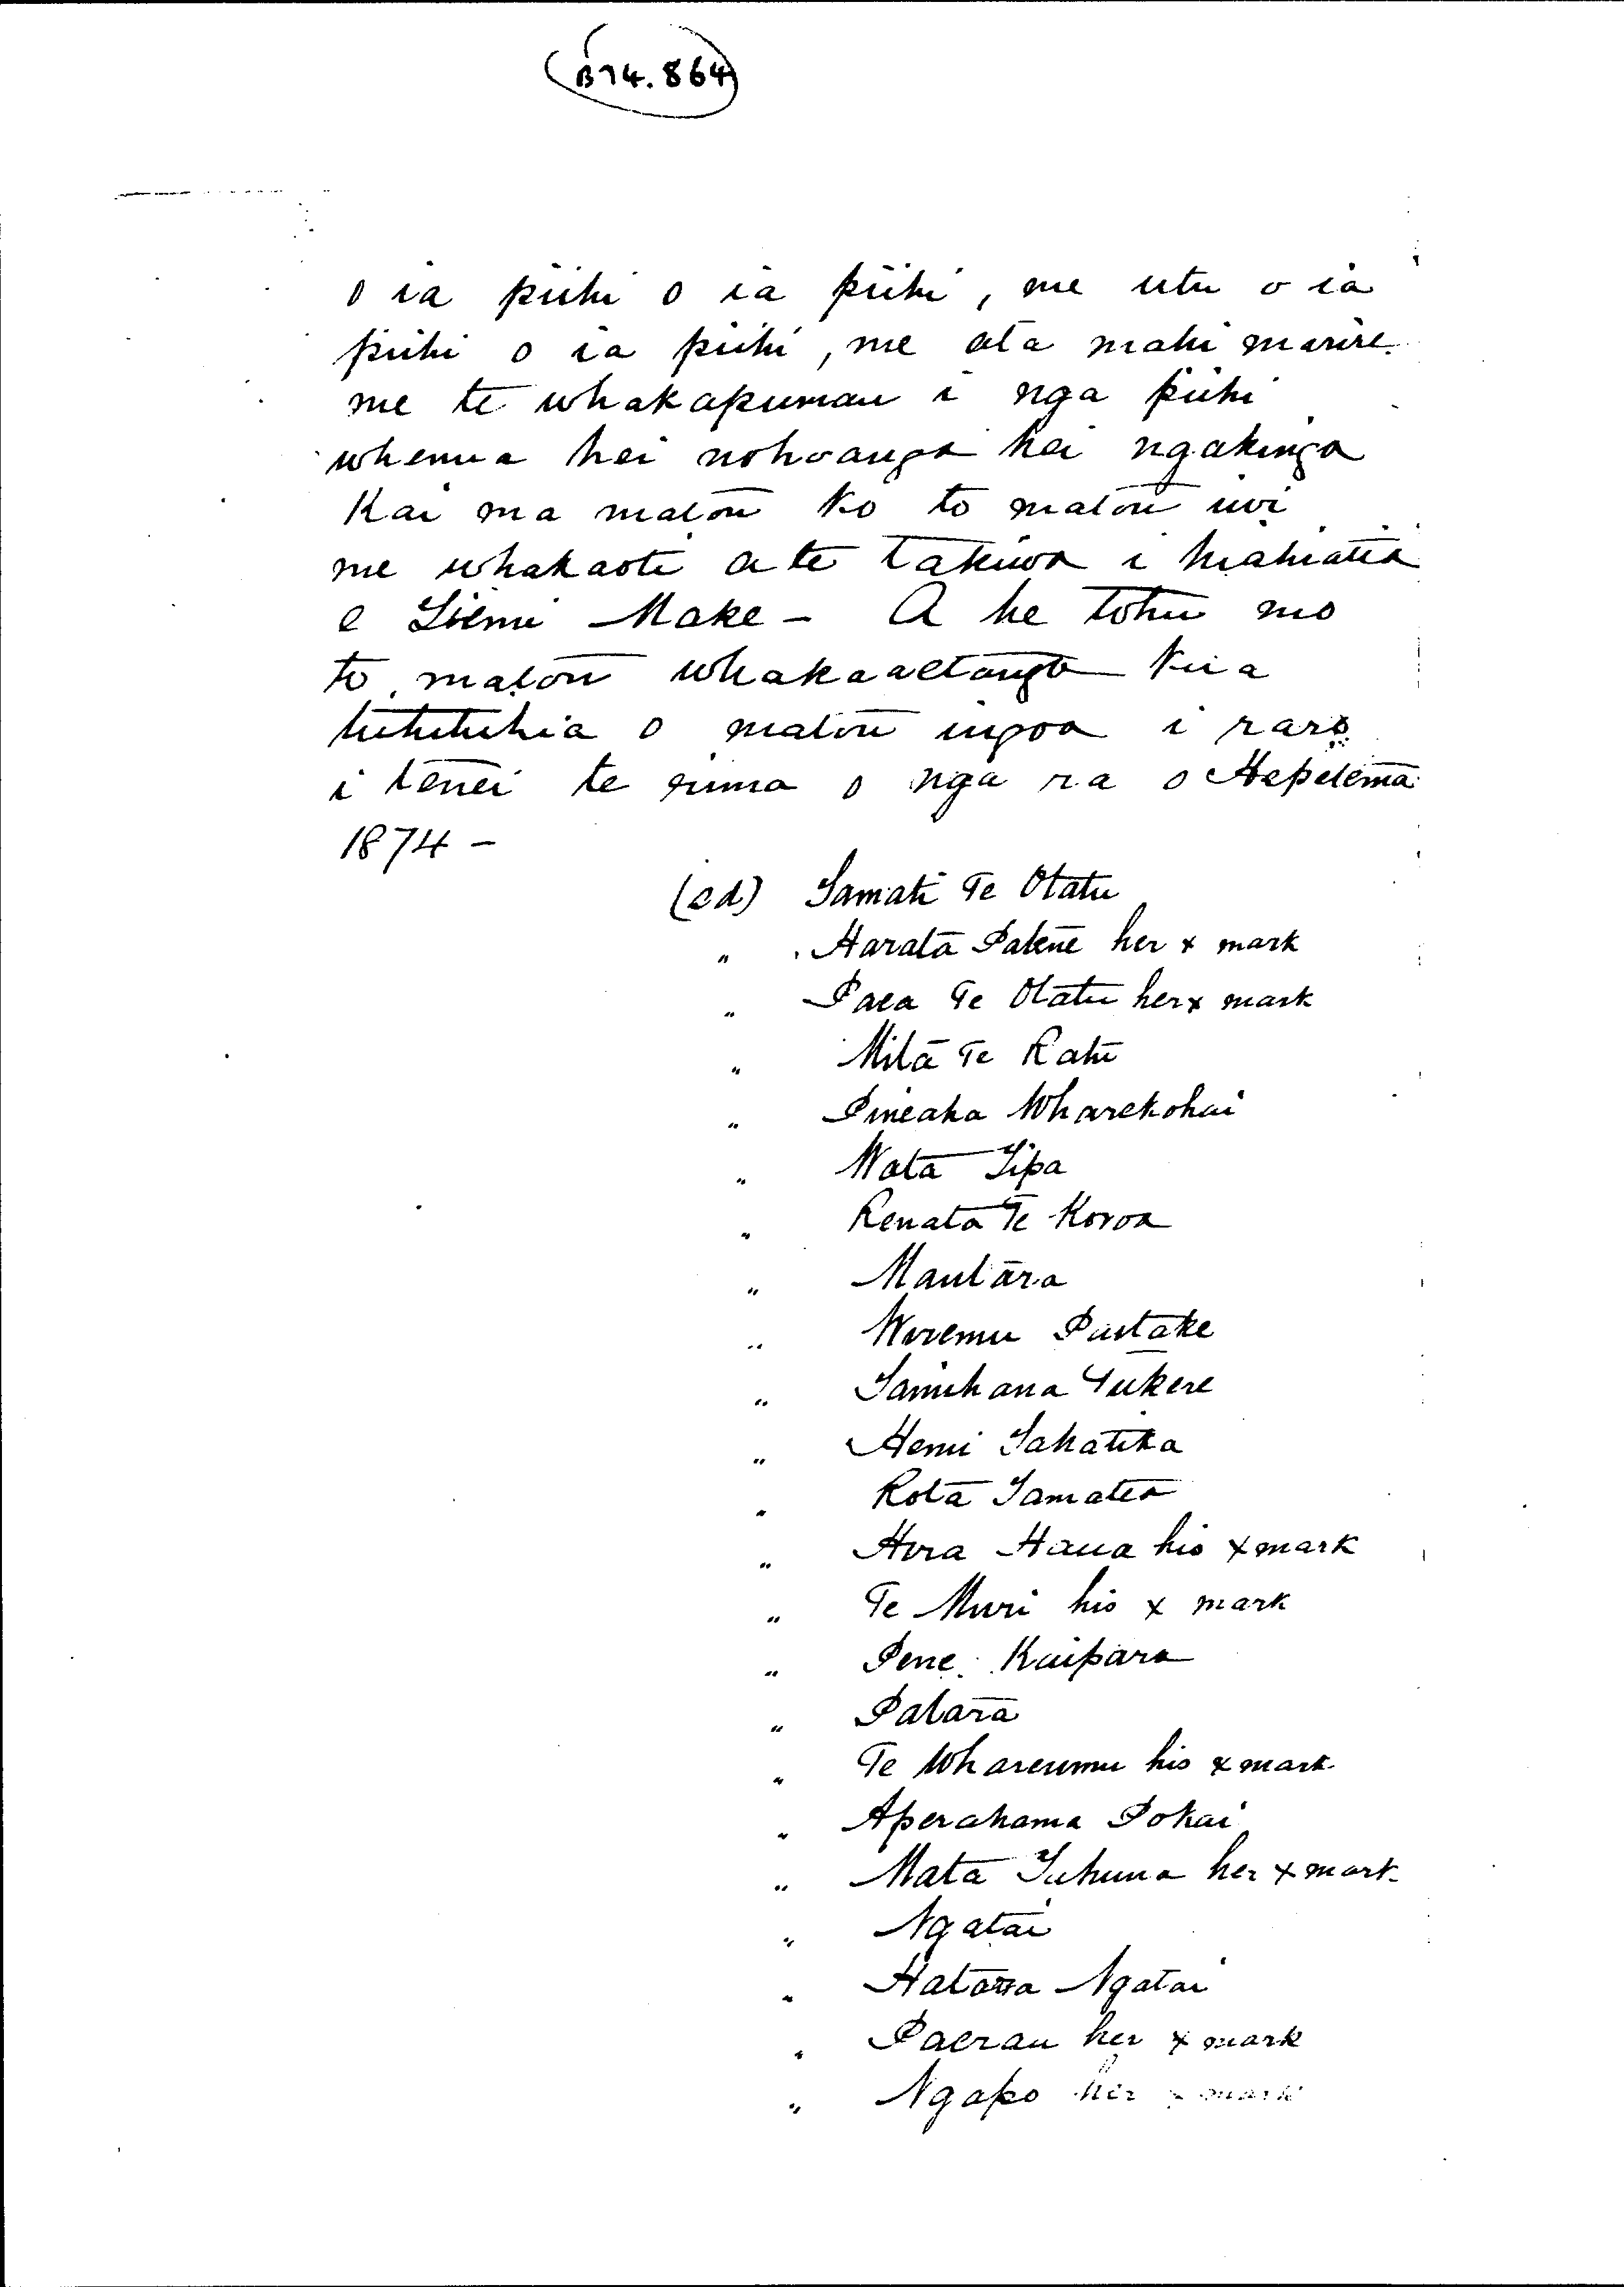 B74.864
o ia piihi o ia piihi, me utu o ia
piihi o ia piihi, me ata mahi marire
me te whakapumau i nga piihi
whenua hei nohoanga hei ngakinga
kai ma matou ko to matou iwi
me whakaoti a te Takiwa i mahiatia
e Tiemi Make - A he tohu mo
to matou whakaaetanga kia
tuhituhia o matou ingoa i raro
i tenei te rima o nga ra o Hepetema
1874 -
(sd) Tamati Te Otatu
" Harata Patene her x mark
" Paea Te Otatu her x mark
" Mita Te Ratu
" Pineaha Wharekohai
" Wata Tipa
" Renata Te Koroa
" Mautara
" Wiremu Paitake
" Tamihana Tukere
" Hemi Takatika
" Rota Tamatea
" Hira Haua his x mark
" Te Muri his x mark
" Pene Kaipara
" Patara
" Te Whareumu his x mark
" Aperahama Pokai
" Mata Tuhuna her x mark
" Ngatai
" Ngatai
" Paerau her x mark
" Ngapo her x mark